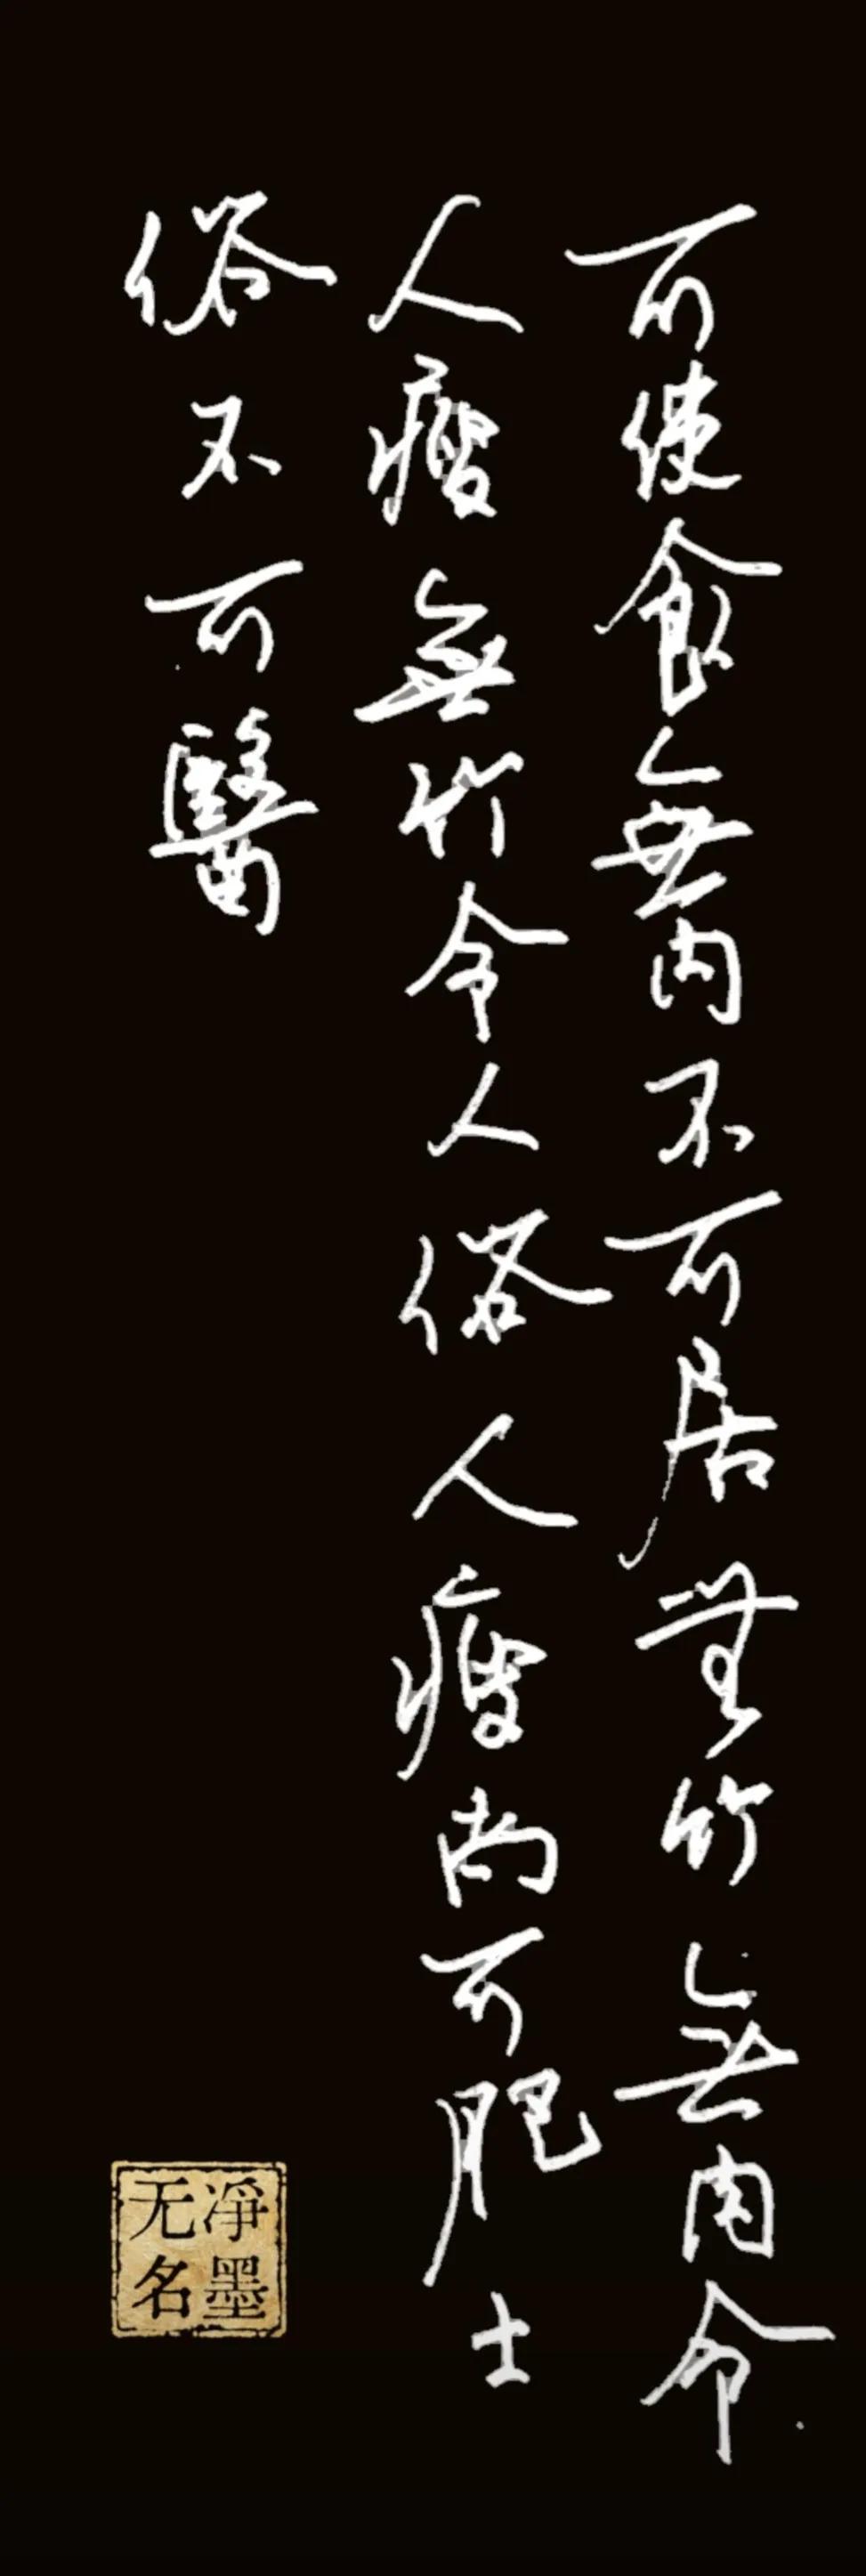 可使食無肉不可居無竹無肉令
人瘦無竹令人俗人瘦尚可肥士
俗不可醫
净墨
无名